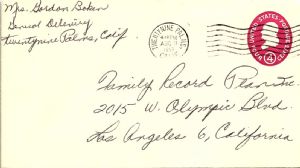 Mrs. Gordon Boken
General Delivery
Twentynine Palms, Calif
TWENTYNINE PALMS
AUG
CALIF
UNITED STATES POSTAGE
4
Family Record Plan Inc.
2015 W. Olympic Blvd.
Los Angeles 6, California